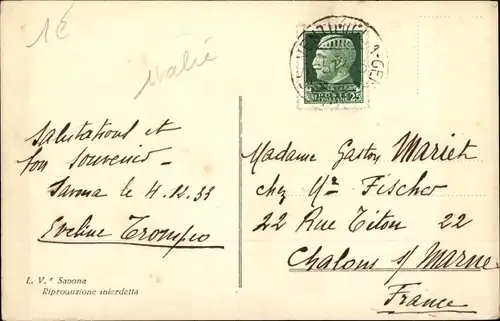 1€
Italie
VENTIMIGLIA-GEN
25
Salutations et
bon souvenir -
Savona le 4.12.33
Eveline Trompeo
L. V.° Savona
Riproduzione interdetta
Madame Gaston Mariet
chez Mr Fischer
22 Rue Titon 22
Chalons s/ Marne
France